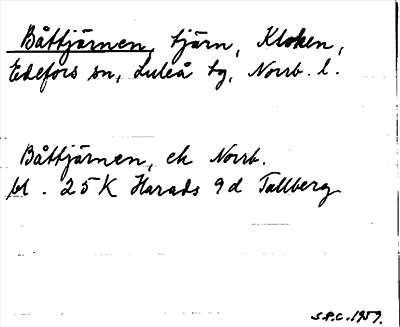 Båttjärnen, tjärn, Kloken,
Edefors sn, Luleå tg, Norrb. l.
Båttjärnen, ek Norrb.
bl. 25K Harads 9d Tallberg
S.P.C. 1959.